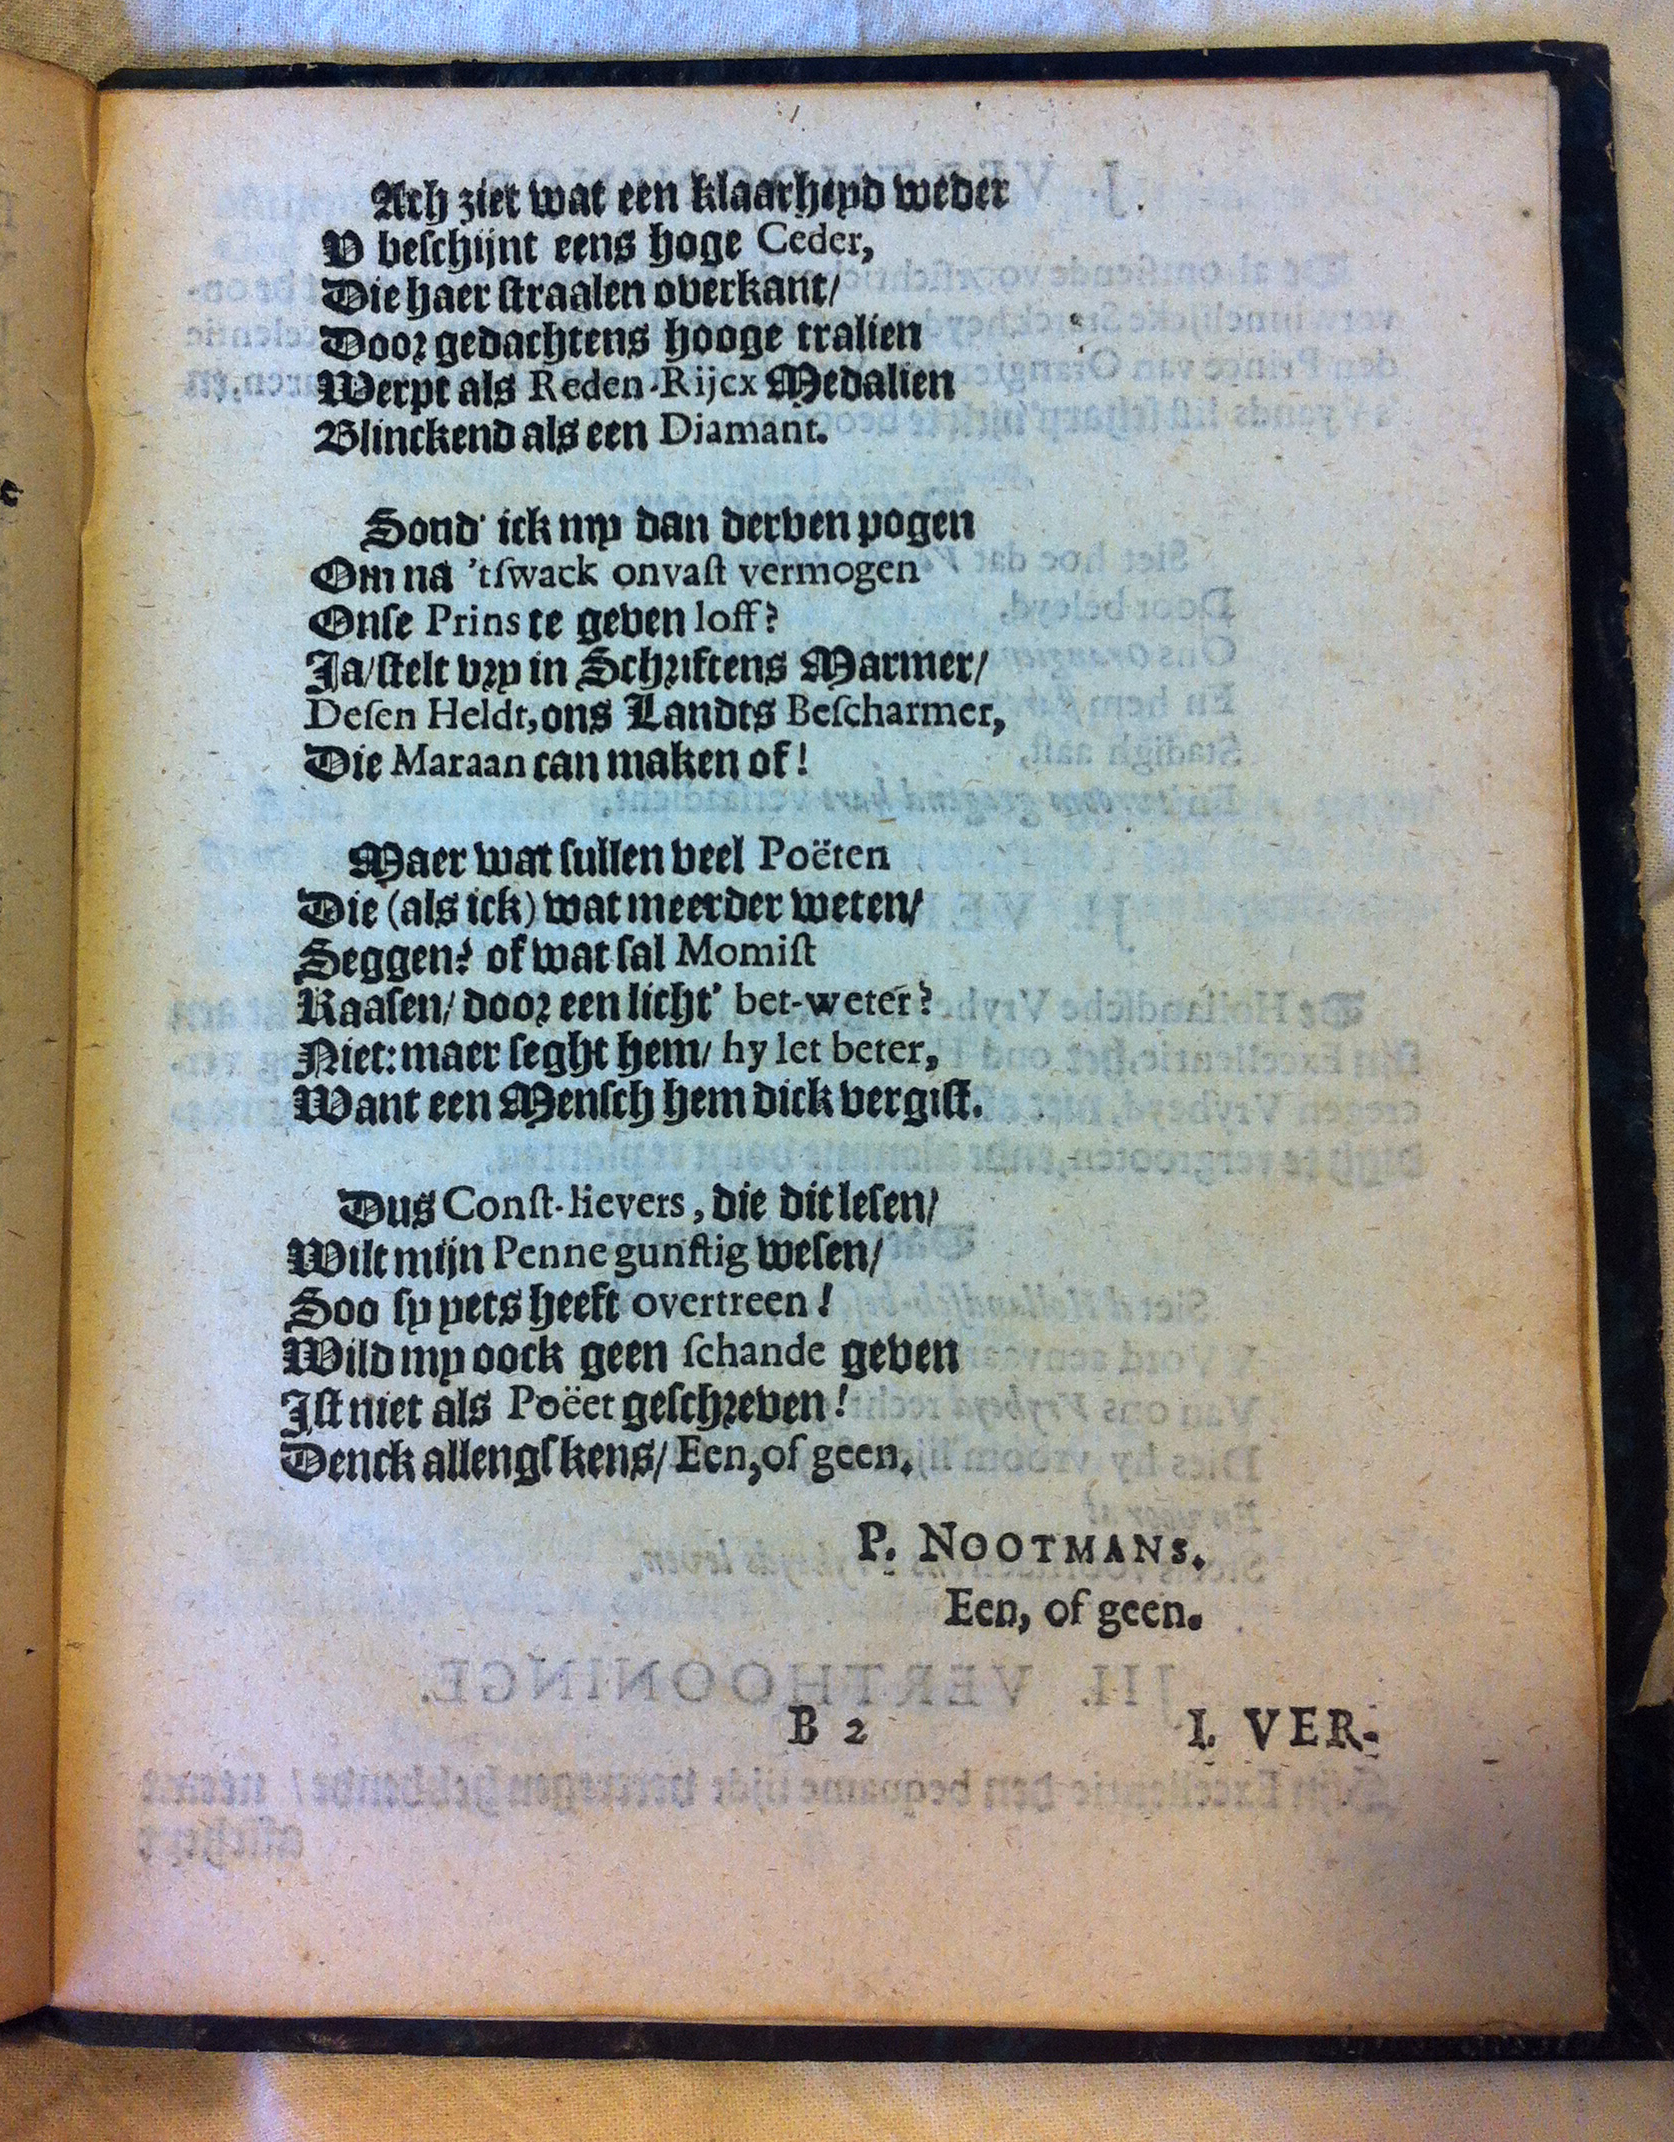 Ach ziet wat een klaarheyd weder
V beſchijnt eens hoge Ceder,
Die haer ſtraalen overkant/
Door gedachtens hooge tralien
Werpt als Reden-Rijcx Medalien
Blinckend als een Diamant.
Sond' ick my dan derven pogen
Om na 'tſwack onvaſt vermogen
Onſe Prins te geven loff?
Ja/ſtelt vry in Schriftens Marmer/
Deſen Heldt, ons Landts Beſcharmer,
Die Maraan can maken of!
Maer wat ſullen veel Poëten
Die (als ick) wat meerder weten/
Seggen? of wat ſal Momiſt
Raaſen/ door een licht' bet-weter?
Niet: maer ſeght hem/ hy let beter,
Want een Menſch hem dick vergiſt.
Dus Conſt-lievers, die dit leſen/
Wilt mijn Penne gunſtig weſen/
Soo ſy yets heeft overtreen!
Wild my oock geen ſchande geven
Iſt niet als Poëet geſchreven!
Denck allengſkens/ Een, of geen.
P. NOOTMANS.
Een, of geen.
B 2 I. VER-